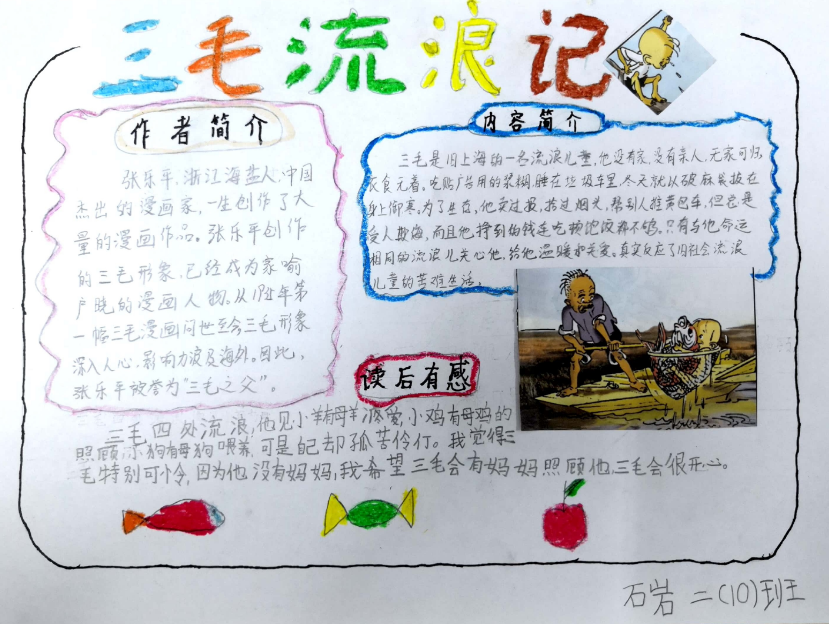 三毛流浪记
作者简介
张乐平,浙江海盐人,中国
杰出的漫画家,一生创作了大
量的漫画作品。张乐平创作
的三毛形象,已经成为家喻
户晓的漫画人物。从年第
一幅三毛漫画问世至今三毛形象
深入人心,影响力波及海外。因此,
张乐平被誉为“三毛之父”。
内容简介
三毛是旧上海的一名流浪儿童,他没有家,没有亲人,无家可归
衣食无着。吃贴广告用的浆糊,睡在垃圾车里,冬天就以破麻袋披在
身上御寒。为了生存,他卖过报,拾过烟头,帮别人推黄包车,但总是
受人欺侮,而且他挣到的钱连吃顿饱饭都不够。只有与他命运
相同的流浪儿关心他,给他温暖和关爱。真实反应了旧社会流浪
儿童的苦难生活。
读后有感
三毛四处流浪,他见小羊有母羊疼爱,小鸡有母鸡的
照顾,小狗有母狗喂养,可是自己却孤苦伶仃。我觉得三
毛特别可怜,因为他没有妈妈,我希望三毛会有妈妈照顾他,三毛会很开心。
石岩 二(10)班